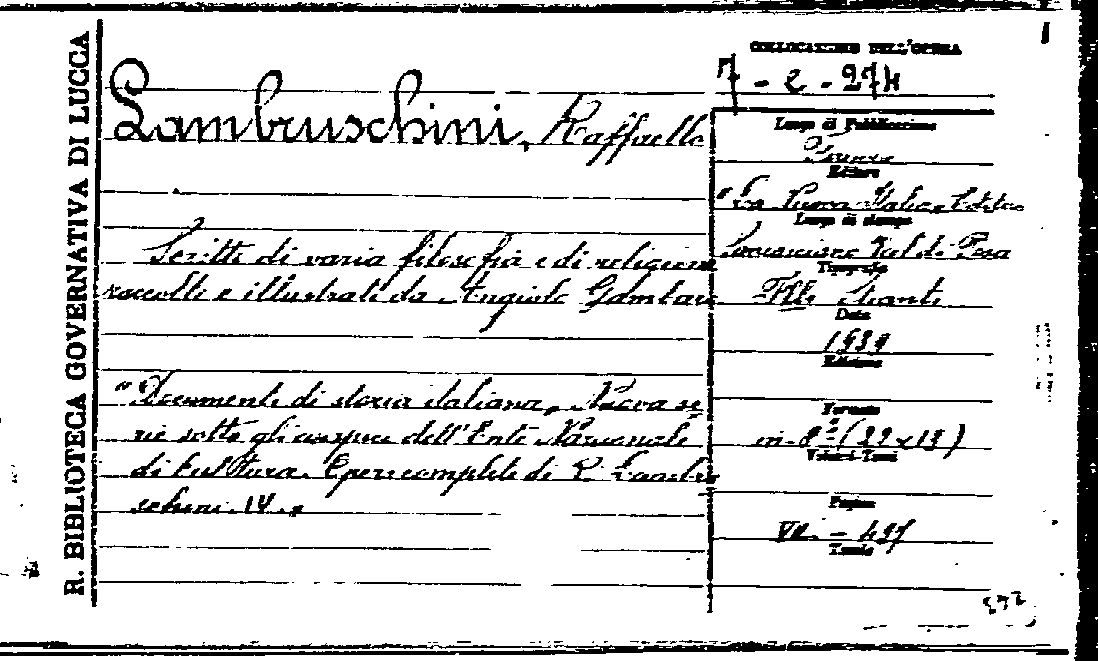 R. BIBLIOTECA GOVERNATIVA DI LUCCA
COLLOCAZIONE DELL'OPERA
7 - 2 - 274
Lambruschini, Raffaello
Scritti di varia filosofia e di religione
raccolti e illustrati da Angiolo Gambaro
"Documenti di storia italiana, Nuova se
rie sotto gli auspici dell'Ente Nazionale
di Cultura. Opere complete di R. Lambru
schini. IV.
Luogo di Pubblicazione
Firenze
Editore
"La Nuova Italia" Editrice
Luogo di stampa
Sancasciano Val di Pesa
Tipografia
F.lli Stianti
Data
1939
Edizione
Formato
in-8º (29x19)
Volumi-Tomi
Pagine
VII - 497
Tavole